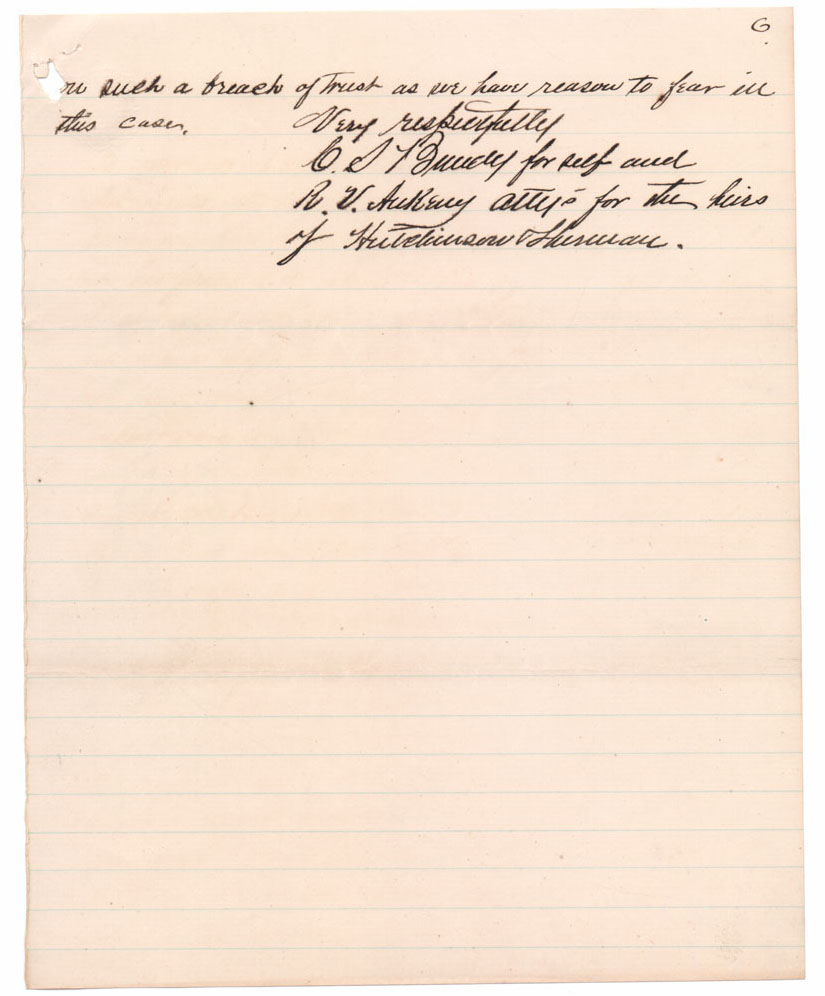 6
on such a breach of trust as we have reason to fear in
this case.
Very respectfully
C. S. Bundy for self and
R. V. Ankeny attys for the heirs
of Hutchinson & Sherman.